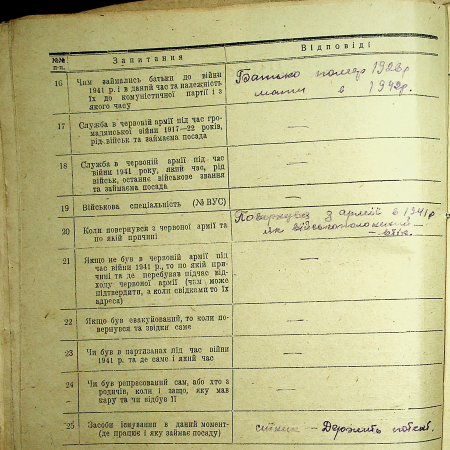 №№ п-п. Запитання Відповіді
16 Чим займались батьки до війни
1941 р. і в даний час та належність
їх до комуністичної партії і з
якого часу
Батько помер 1923р
мати в 1942р.
17 Служба в червоній армії під час гро-
мадянської війни 1917—22 років,
рід військ та займаєма посада
—
18 Служба в червоній армії під час
війни 1941 року, який час, рід
військ, останнє військове звання
та займаєма посада
—
19 Військова спеціяльність (N ВУС)
—
20 Коли повернувся з червоної армії та
по якій причині
Повернувся з армії в 1941р
як військополонений
21 Якщо не був в червоній армії під
час війни 1941 р., то по якій при-
чині та де перебував підчас відх-
ходу червоної армії (чим може
підтвердити, а коли свідками то їх
адреса)
—
22 Якщо був евакуйований, то коли по-
вернувся та звідки саме
—
23 Чи був в партизанах під час війни
1941 р. та де саме і який час
—
24 Чи був репресований сам, або хто з
родичів, коли і защо, яку мав
кару та чи відбув її
—
25 Засоби існування в даний момент-
(де працює і яку займає посаду)
— Держить